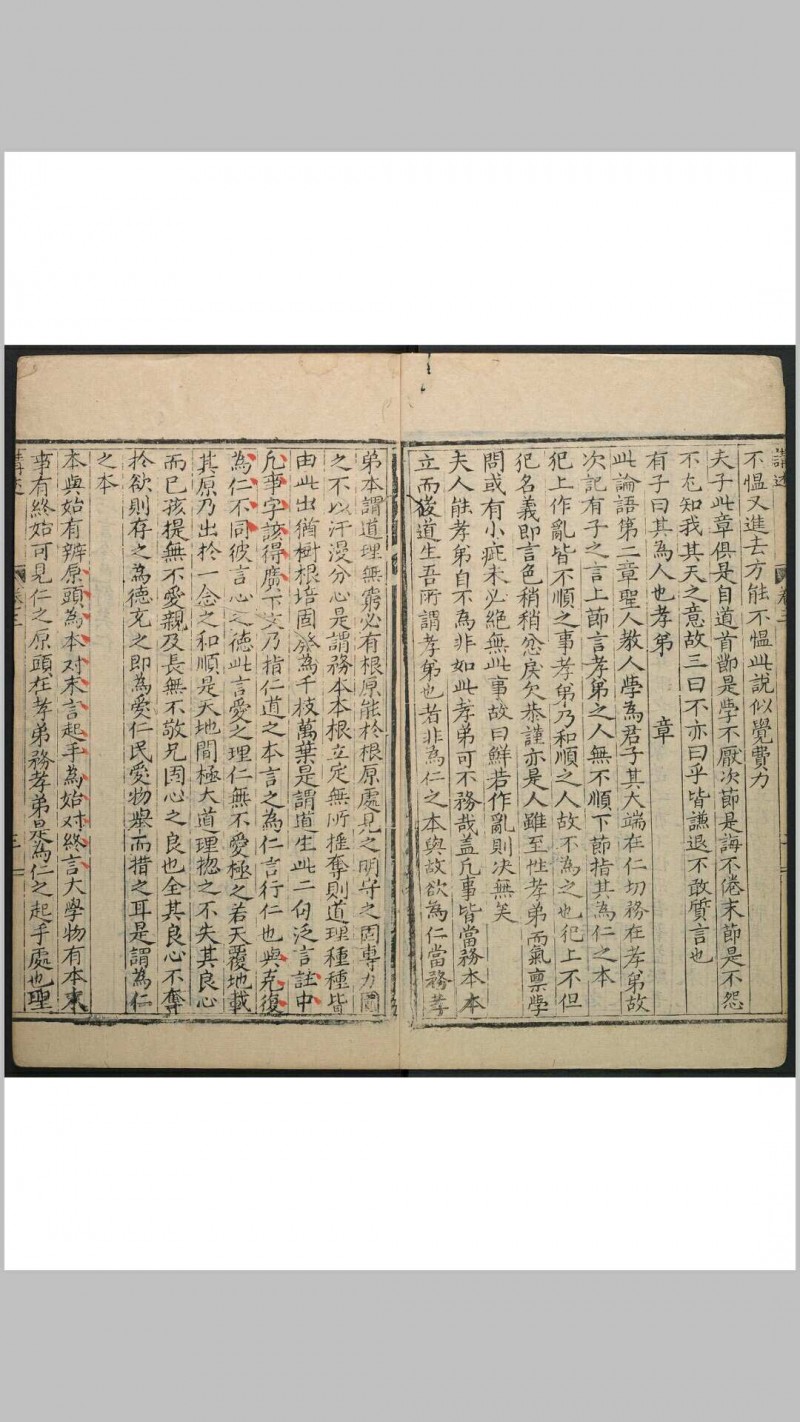 不慍又進去方能不慍此說似覺費力
夫子此章俱是自道首節是學不厭次節是誨不倦末節是不怨
不尤知我其天之意故三曰不亦曰乎皆謙退不敢質言也
有子曰其為人也孝弟 章
此論語第二章聖人教人學為君子其大端在仁切務在孝弟故
次記有子之言上節言孝弟之人無不順下節指其為仁之本
犯上作亂皆不順之事孝弟乃和順之人故不為之也犯上不但
犯名義即言色稍稍忿戾欠恭謹亦是人雖至性孝弟而氣稟學
問或有小疵未必絕無此事故曰鮮若作亂則决無矣
夫人能孝弟自不為非如此孝弟可不務哉盖凢事皆當務本本
立而後道生吾所謂孝弟也者非為仁之本與故欲為仁當務孝
弟本謂道理無窮必有根原能於根原處見之明守之固專力圖
之不以汗漫分心是謂務本本根立定無所推奪則道理種種皆
由此出猶樹根培固發為千枝萬葉是謂道生此二句泛言註中
凢事字該得廣下文乃指仁道之本言之為仁言行仁也與克復
為仁不同彼言心之德此言愛之理仁無不愛極之若天覆地載
其原乃出於一念之和順是天地間極大道理揔之不失其良心
而已孩提無不愛親及長無不敬兄固心之良也全其良心不奪
扵欲則存之為德充之即為愛仁民愛物舉而措之耳是謂為仁
之本
本與始有辨原頭為本对末言起手為始对終言大學物有本末
事有終始可見仁之原頭在孝弟務孝弟是為仁之起手處也聖